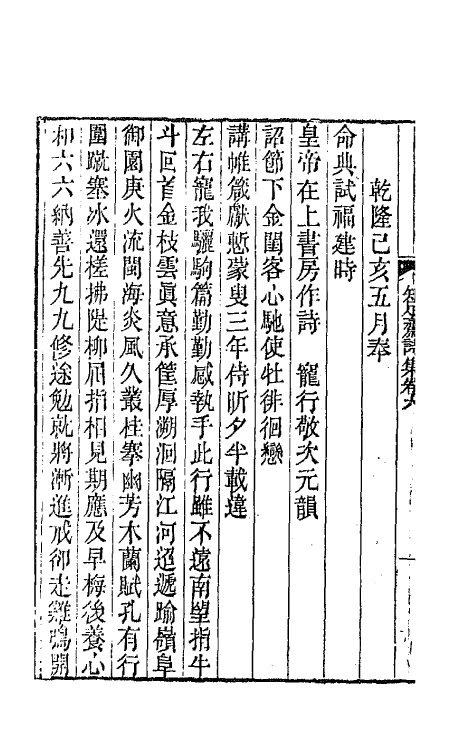 知足齋詩集卷六
乾隆己亥五月奉
命典試福建時
皇帝在上書房作詩　寵行敬次元韻
詔節下金閨客心馳使牡徘徊戀
講帷箴獻慙蒙叟三年侍昕夕半載違
左右寵我驪駒篇勤勤感執手此行雖不遠南望指牛
斗回首金枝雲眞意承筐厚溯洄隔江河迢遞踰嶺阜
御園庚火流閩海炎風久叢桂搴幽芳木蘭賦孔有行
圍蹴塞冰還槎拂隄柳屈指相見期應及早梅後養心
和六六納善先九九修途勉就將漸進戒卻走雞鳴開